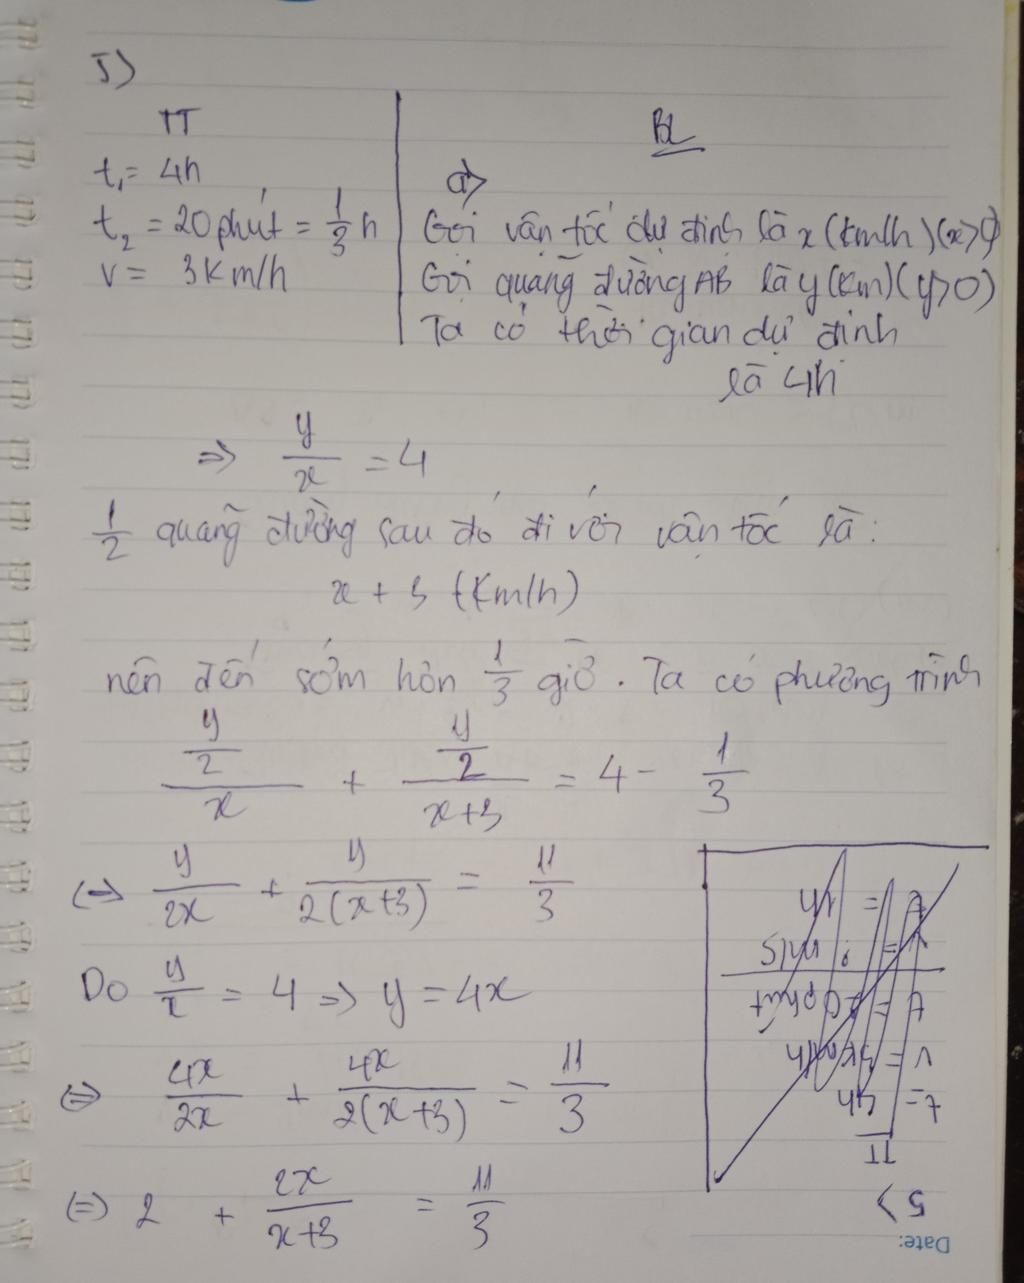 5)
TT
t₁ = 4h
t₂ = 20 phút = 1/3 h
v = 3 Km/h
BL
a)
Gọi vận tốc dự định là x (km/h) (x>0)
Gọi quãng đường AB là y (km) (y>0)
Ta có thời gian dự định
là 4h
=> y/x = 4
1/2 quãng đường sau đó đi với vận tốc là:
x + 3 (Km/h)
nên đến sớm hơn 1/3 giờ. Ta có phương trình
(y/2)/x + (y/2)/(x+3) = 4 - 1/3
(=) y/2x + y/2(x+3) = 11/3
Do y/x = 4 => y = 4x
(=) 4x/2x + 4x/2(x+3) = 11/3
(=) 2 + 2x/x+3 = 11/3
Date:
5)
TT
t = 4h
v = 3km/h
t = 20 phút